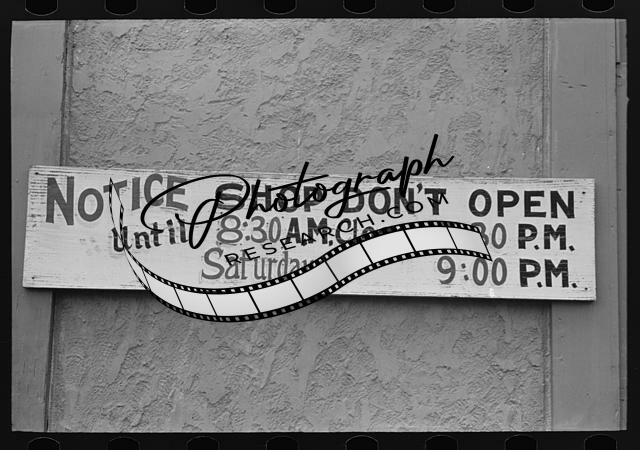 NOTICE SHOP DON'T OPEN
Until 8:30 AM. 30 P.M.
Saturday 9:00 P.M.
Photograph
RESEARCH.COM